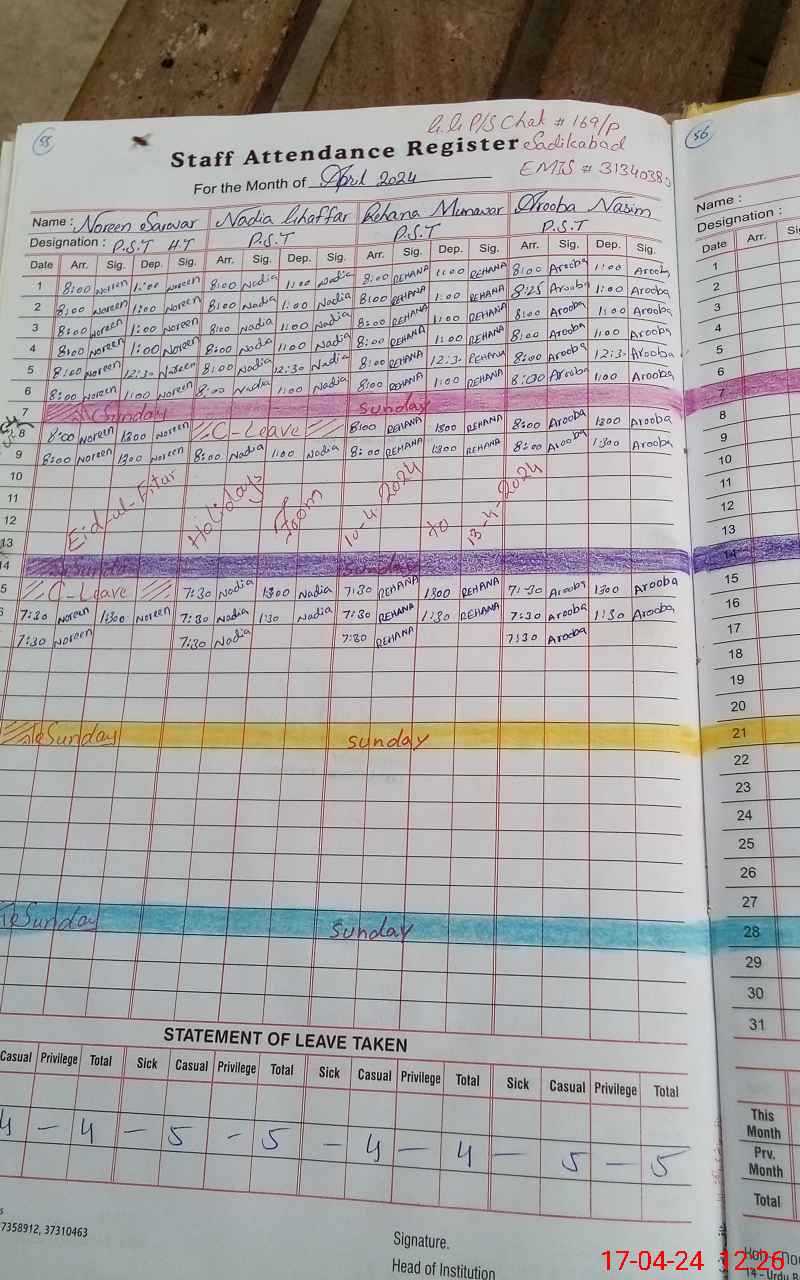 55
G.G P/S Chak # 169/P
Staff Attendance Register Sadikabad
For the Month of April 2024 EMIS # 31340380
56
Name : Noreen Sarwar Nadia Ghaffar Rehana Munawar Arooba Nasim
Designation : P.S.T H.T P.S.T P.S.T P.S.T
Date Arr. Sig. Dep. Sig. Arr. Sig. Dep. Sig. Arr. Sig. Dep. Sig. Arr. Sig. Dep. Sig.
1 8:00 Noreen 1:00 Noreen 8:00 Nadia 1:00 Nadia 8:00 REHANA 1:00 REHANA 8:00 Arooba 1:00 Arooba
2 8:00 Noreen 1:00 Noreen 8:00 Nadia 1:00 Nadia 8:00 REHANA 1:00 REHANA 8:25 Arooba 1:00 Arooba
3 8:00 Noreen 1:00 Noreen 8:00 Nadia 1:00 Nadia 8:00 REHANA 1:00 REHANA 8:00 Arooba 1:00 Arooba
4 8:00 Noreen 1:00 Noreen 8:00 Nadia 1:00 Nadia 8:00 REHANA 1:00 REHANA 8:00 Arooba 1:00 Arooba
5 8:00 Noreen 12:30 Noreen 8:00 Nadia 12:30 Nadia 8:00 REHANA 12:30 REHANA 8:00 Arooba 12:30 Arooba
6 8:00 Noreen 1:00 Noreen 8:00 Nadia 1:00 Nadia 8:00 REHANA 1:00 REHANA 8:00 Arooba 1:00 Arooba
7 Sunday Sunday
8 8:00 Noreen 1300 Noreen C-Leave 8:00 REHANA 1300 REHANA 8:00 Arooba 1300 Arooba
9 8:00 Noreen 1300 Noreen 8:00 Nadia 1:00 Nadia 8:00 REHANA 1300 REHANA 8:00 Arooba 1300 Arooba
10
11
12 Eid-ul-Fitar Holidays From 10-4-2024 to 13-4-2024
13
14 Sunday Sunday
5 C-Leave 7:30 Nadia 1300 Nadia 7:30 REHANA 1300 REHANA 7:30 Arooba 1300 Arooba
6 7:30 Noreen 1:300 Noreen 7:30 Nadia 1:30 Nadia 7:30 REHANA 1:30 REHANA 7:30 Arooba 1:30 Arooba
7:30 Noreen 7:30 Nadia 7:30 REHANA 7:30 Arooba
Sunday sunday
Sunday Sunday
STATEMENT OF LEAVE TAKEN
Casual Privilege Total Sick Casual Privilege Total Sick Casual Privilege Total Sick Casual Privilege Total
4 - 4 - 5 - 5 - 4 - 4 - 5 - 5
7358912, 37310463
Signature.
Head of Institution
Name :
Designation :
Date Arr. Sig.
1
2
3
4
5
6
7
8
9
10
11
12
13
14
15
16
17
18
19
20
21
22
23
24
25
26
27
28
29
30
31
This
Month
Prv.
Month
Total
17-04-24 12:26